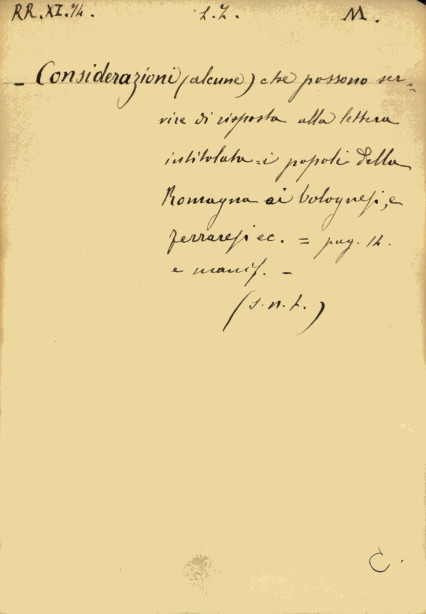 RR.XI.74. L.I. M.
- Considerazioni (alcune) che possono ser-
vire di risposta alla lettera
intitolata = i popoli della
Romagna ai bolognesi, e
ferraresi ec. = pag. 14.
e manif. -
(s.n.t.)
C.